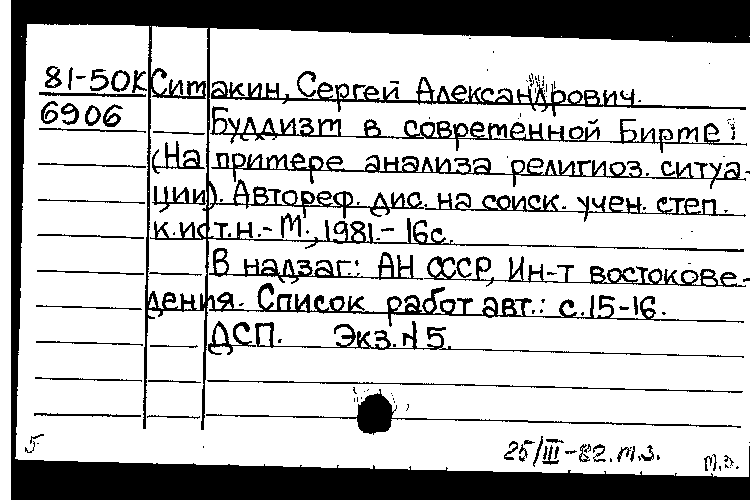 81-50К Ситакин, Сергей Александрович.
6906 Буддизм в современной Бирме.
(На примере анализа религиоз. ситуа-
ции). Автореф. дис. на соиск. учен. степ.
к.ист.н.- М., 1981.- 16с.
В надзаг: АН СССР, Ин-т востокове-
дения. Список работ авт.: с.15-16.
ДСП. Экз. N 5.
5 25/III-82. т.з. т.з.